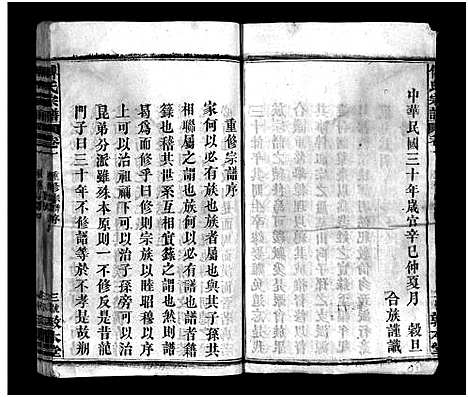 中華民國三十年歲宜辛巳仲夏月 穀旦
合族謹識
重修宗譜序
家何以必有族也族者其子孫共
相聯屬之謂也族何以有譜也譜者籍
籙也稽其世系互相宜籙之謂也然則譜
曷爲而修乎曰修則宗族以睦昭穆以序
上可以治祖禰下可以治子孫旁可以治
昆弟分派雖殊本原則一不修反是昔龍
門子曰三十年不修譜等於不孝是故朔
氏宗譜
卷
重修宗譜序
三畝
敦本堂